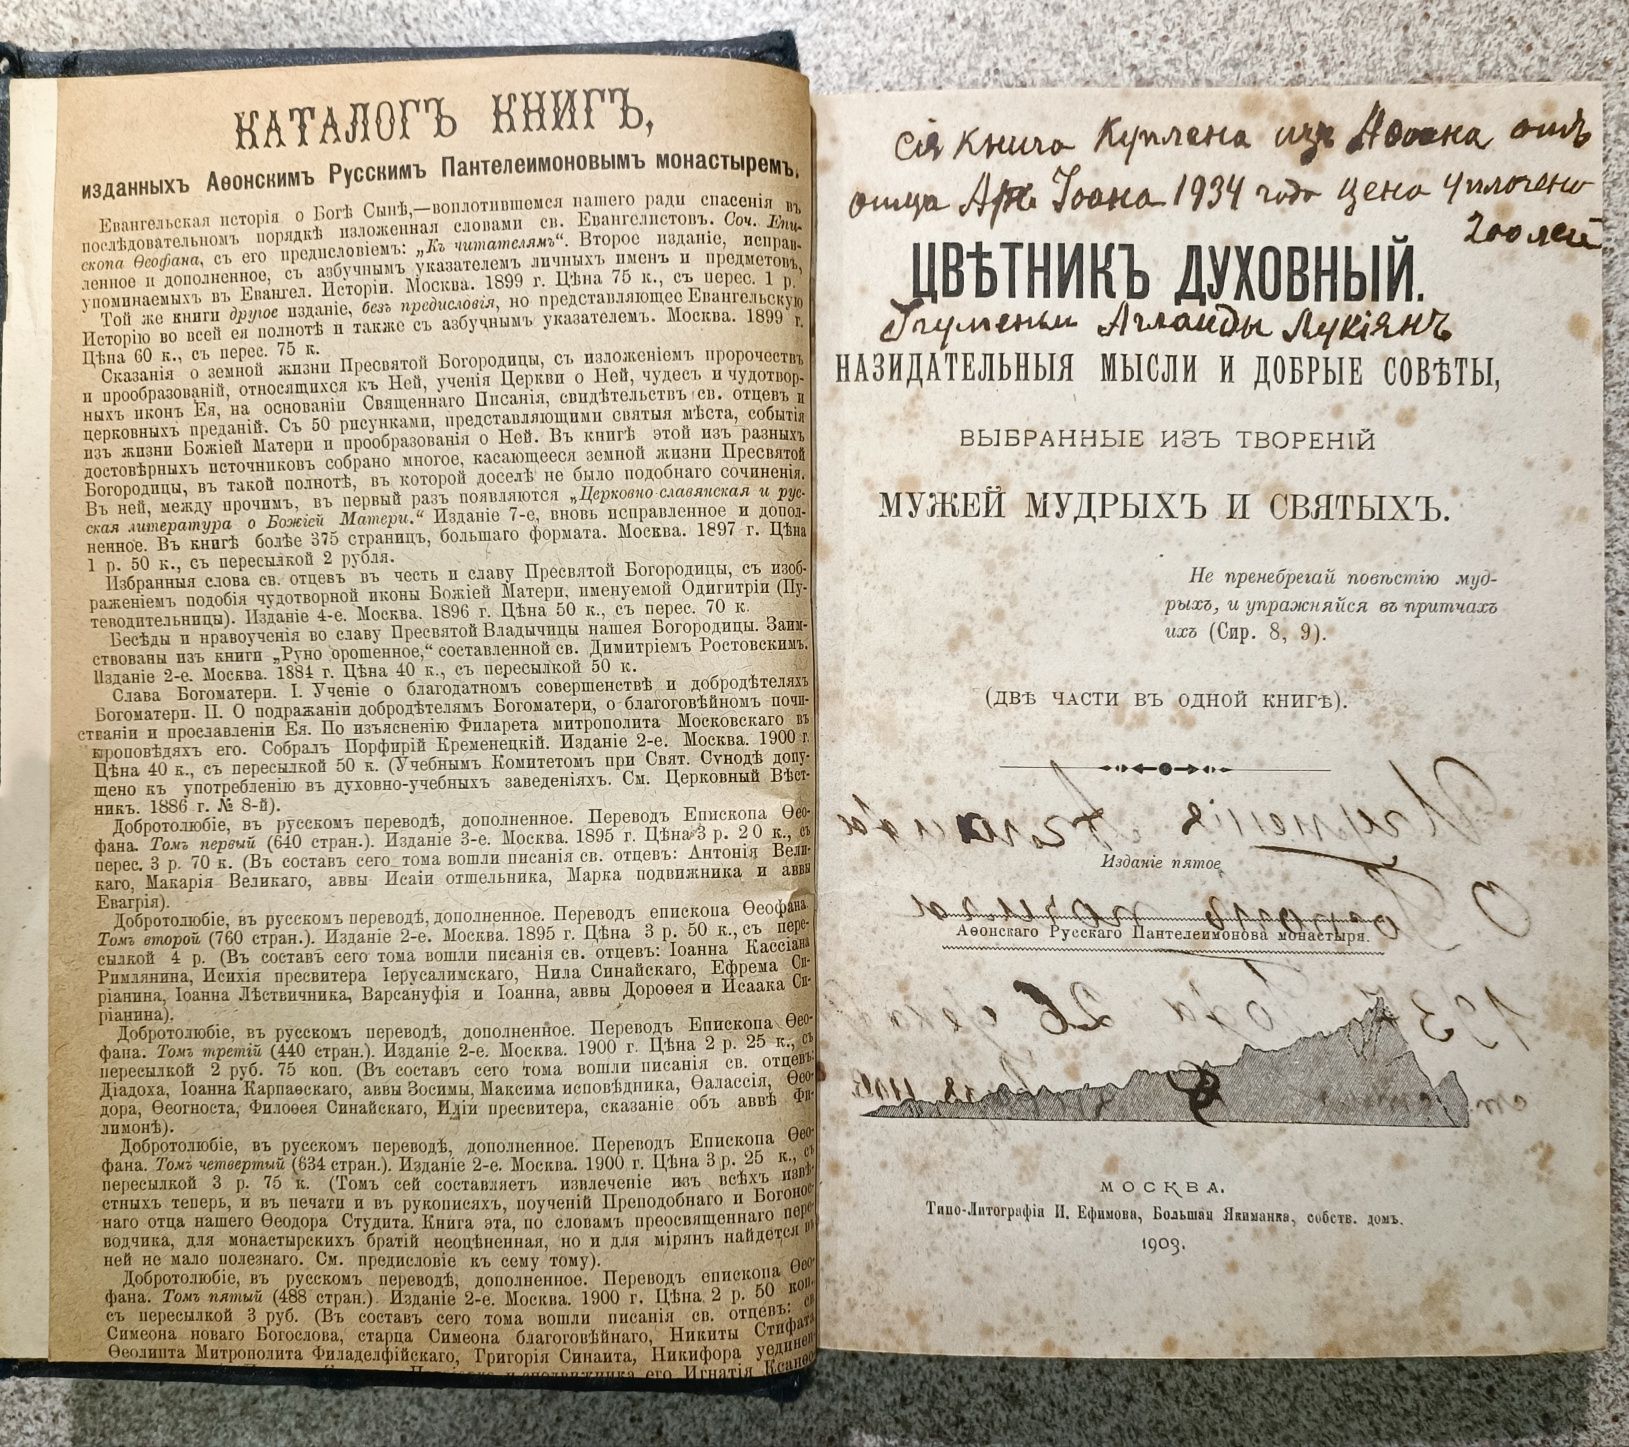 КАТАЛОГЪ КНИГЪ,
изданныхъ Аѳонскимъ Русскимъ Пантелеимоновымъ монастыремъ.
Евангельская исторія о Богѣ Сынѣ,—воплотившемся нашего ради спасенія въ
послѣдовательномъ порядкѣ изложенная словами св. Евангелистовъ. Соч. Епи-
скопа Ѳеофана, съ его предисловіемъ: „Къ читателямъ“. Второе изданіе, исправ-
ленное и дополненное, съ азбучнымъ указателемъ личныхъ именъ и предметовъ,
упоминаемыхъ въ Евангел. Исторіи. Москва. 1899 г. Цѣна 75 к., съ перес. 1 р.
Той же книги другое изданіе, безъ предисловія, но представляющее Евангельскую
Исторію во всей ея полнотѣ и также съ азбучнымъ указателемъ. Москва. 1899 г.
Цѣна 60 к., съ перес. 75 к.
Сказанія о земной жизни Пресвятой Богородицы, съ изложеніемъ пророчествъ
и прообразованій, относящихся къ Ней, ученія Церкви о Ней, чудесъ и чудотвор-
ныхъ иконъ Ея, на основаніи Священнаго Писанія, свидѣтельствъ св. отцевъ и
церковныхъ преданій. Съ 50 рисунками, представляющими святыя мѣста, событія
изъ жизни Божіей Матери и прообразованія о Ней. Въ книгѣ этой изъ разныхъ
достовѣрныхъ источниковъ собрано многое, касающееся земной жизни Пресвятой
Богородицы, въ такой полнотѣ, въ которой доселѣ не было подобнаго сочиненія.
Въ ней, между прочимъ, въ первый разъ появляются „Церковно-славянская и рус-
ская литература о Божіей Матери.“ Изданіе 7-е, вновь исправленное и допол-
ненное. Въ книгѣ болѣе 375 страницъ, большаго формата. Москва. 1897 г. Цѣна
1 р. 50 к., съ пересылкой 2 рубля.
Избранныя слова св. отцевъ въ честь и славу Пресвятой Богородицы, съ изоб-
раженіемъ подобія чудотворной иконы Божіей Матери, именуемой Одигитріи (Пу-
теводительницы). Изданіе 4-е. Москва. 1896 г. Цѣна 50 к., съ перес. 70 к.
Бесѣды и нравоученія во славу Пресвятой Владычицы нашея Богородицы. Заим-
ствованы изъ книги „Руно орошенное,“ составленной св. Димитріемъ Ростовскимъ.
Изданіе 2-е. Москва. 1884 г. Цѣна 40 к., съ пересылкой 50 к.
Слава Богоматери. I. Ученіе о благодатномъ совершенствѣ и добродѣтеляхъ
Богоматери. II. О подражаніи добродѣтелямъ Богоматери, о благоговѣйномъ почи-
таніи и прославленіи Ея. По изъясненію Филарета митрополита Московскаго въ
проповѣдяхъ его. Собралъ Порфирій Кременецкій. Изданіе 2-е. Москва. 1900 г.
Цѣна 40 к., съ пересылкой 50 к. (Учебнымъ Комитетомъ при Свят. Сѵнодѣ допу-
щено къ употребленію въ духовно-учебныхъ заведеніяхъ. См. Церковный Вѣст-
никъ. 1886 г. № 8-й).
Добротолюбіе, въ русскомъ переводѣ, дополненное. Переводъ Епископа Ѳео-
фана. Томъ первый (640 стран.). Изданіе 3-е. Москва. 1895 г. Цѣна 3 р. 20 к., съ
перес. 3 р. 70 к. (Въ составъ сего тома вошли писанія св. отцевъ: Антонія Вели-
каго, Макарія Великаго, аввы Исаіи отшельника, Марка подвижника и аввы
Евагрія).
Добротолюбіе, въ русскомъ переводѣ, дополненное. Переводъ епископа Ѳеофана.
Томъ второй (760 стран.). Изданіе 2-е. Москва. 1895 г. Цѣна 3 р. 50 к., съ пере-
сылкой 4 р. (Въ составъ сего тома вошли писанія св. отцевъ: Іоанна Кассіана
Римлянина, Исихія пресвитера Іерусалимскаго, Нила Синайскаго, Ефрема Си-
ріанина, Іоанна Лѣствичника, Варсануфія и Іоанна, аввы Дороѳея и Исаака Си-
ріанина).
Добротолюбіе, въ русскомъ переводѣ, дополненное. Переводъ Епископа Ѳео-
фана. Томъ третій (440 стран.). Изданіе 2-е. Москва. 1900 г. Цѣна 2 р. 25 к., съ
пересылкой 2 руб. 75 коп. (Въ составъ сего тома вошли писанія св. отцевъ:
Діадоха, Іоанна Карпаѳскаго, аввы Зосимы, Максима исповѣдника, Ѳалассія, Ѳео-
дора, Ѳеогноста, Филоѳея Синайскаго, Иліи пресвитера, сказаніе объ аввѣ Фи-
лимонѣ).
Добротолюбіе, въ русскомъ переводѣ, дополненное. Переводъ Епископа Ѳео-
фана. Томъ четвертый (634 стран.). Изданіе 2-е. Москва. 1900 г. Цѣна 3 р. 25 к., съ
пересылкой 3 р. 75 к. (Томъ сей составляетъ извлеченіе изъ всѣхъ извѣ-
стныхъ теперь, и въ печати и въ рукописяхъ, поученій Преподобнаго и Богонос-
наго отца нашего Ѳеодора Студита. Книга эта, по словамъ преосвященнаго пере-
водчика, для монастырскихъ братій неоцѣненная, но и для мірянъ найдется въ
ней не мало полезнаго. См. предисловіе къ сему тому).
Добротолюбіе, въ русскомъ переводѣ, дополненное. Переводъ епископа Ѳео-
фана. Томъ пятый (488 стран.). Изданіе 2-е. Москва. 1900 г. Цѣна 2 р. 50 коп.
съ пересылкой 3 руб. (Въ составъ сего тома вошли писанія св. отцевъ: св.
Симеона новаго Богослова, старца Симеона благоговѣйнаго, Никиты Стифата
Ѳеолипта Митрополита Филаделфійскаго, Григорія Синаита, Никифора уединен-
его Игнатія
сія книга куплена изъ Аѳона отъ
отца Іоана 1934 года цена уплочено
200 лей
ЦВѢТНИКЪ ДУХОВНЫЙ.
Игуменьи Аглаиды Лукіянъ
НАЗИДАТЕЛЬНЫЯ МЫСЛИ И ДОБРЫЕ СОВѢТЫ,
ВЫБРАННЫЕ ИЗЪ ТВОРЕНІЙ
МУЖЕЙ МУДРЫХЪ И СВЯТЫХЪ.
Не пренебрегай повѣстію муд-
рыхъ, и упражняйся въ притчахъ
ихъ (Сир. 8, 9).
(ДВѢ ЧАСТИ ВЪ ОДНОЙ КНИГѢ).
Изданіе пятое
Аѳонскаго Русскаго Пантелеимонова монастыря.
МОСКВА.
Типо-Литографія И. Ефимова, Большая Якиманка, собств. домъ.
1903.